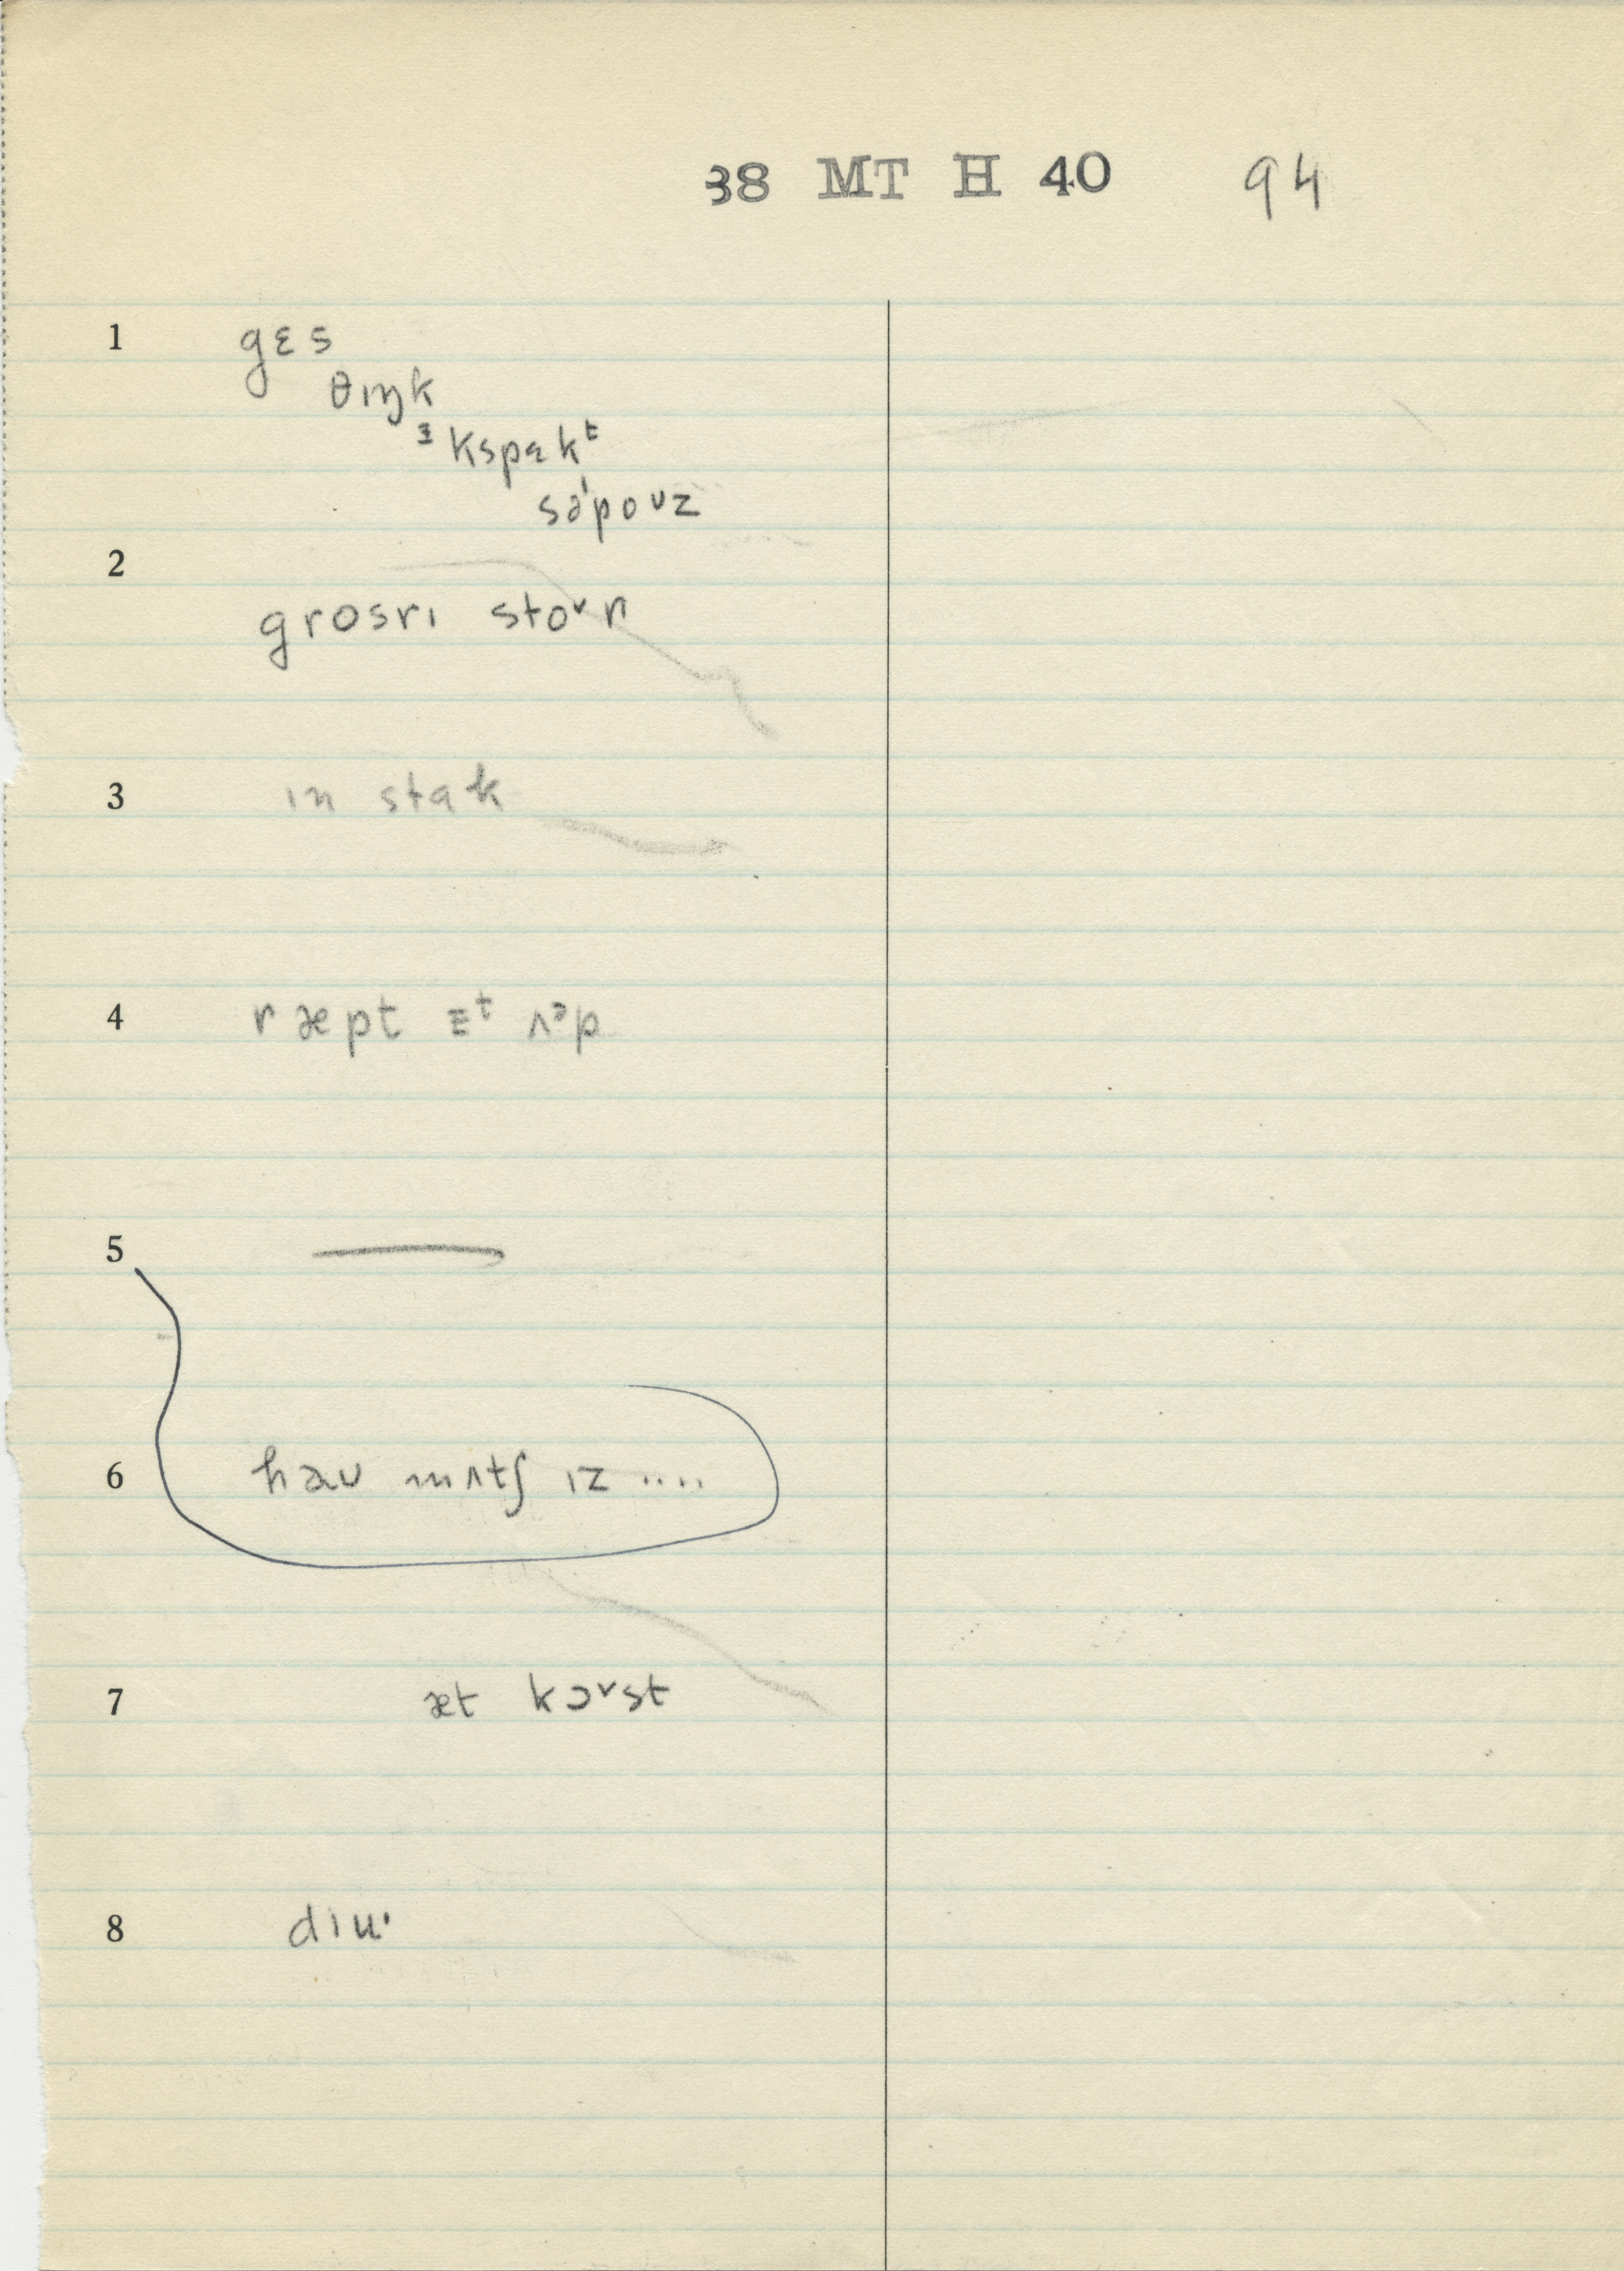 38 MT H 40 94
1 gɛs
θɪŋk
ᵻkspɛkᵗ
sə'poʊz
2
grosrɪ stoᵛr
3 ɪn stɑk
4 ræpt ɪᵗ ʌᵊp
5 —
6 haʊ mʌtʃ ɪz ....
7 æt kɔᵛst
8 dɪu·